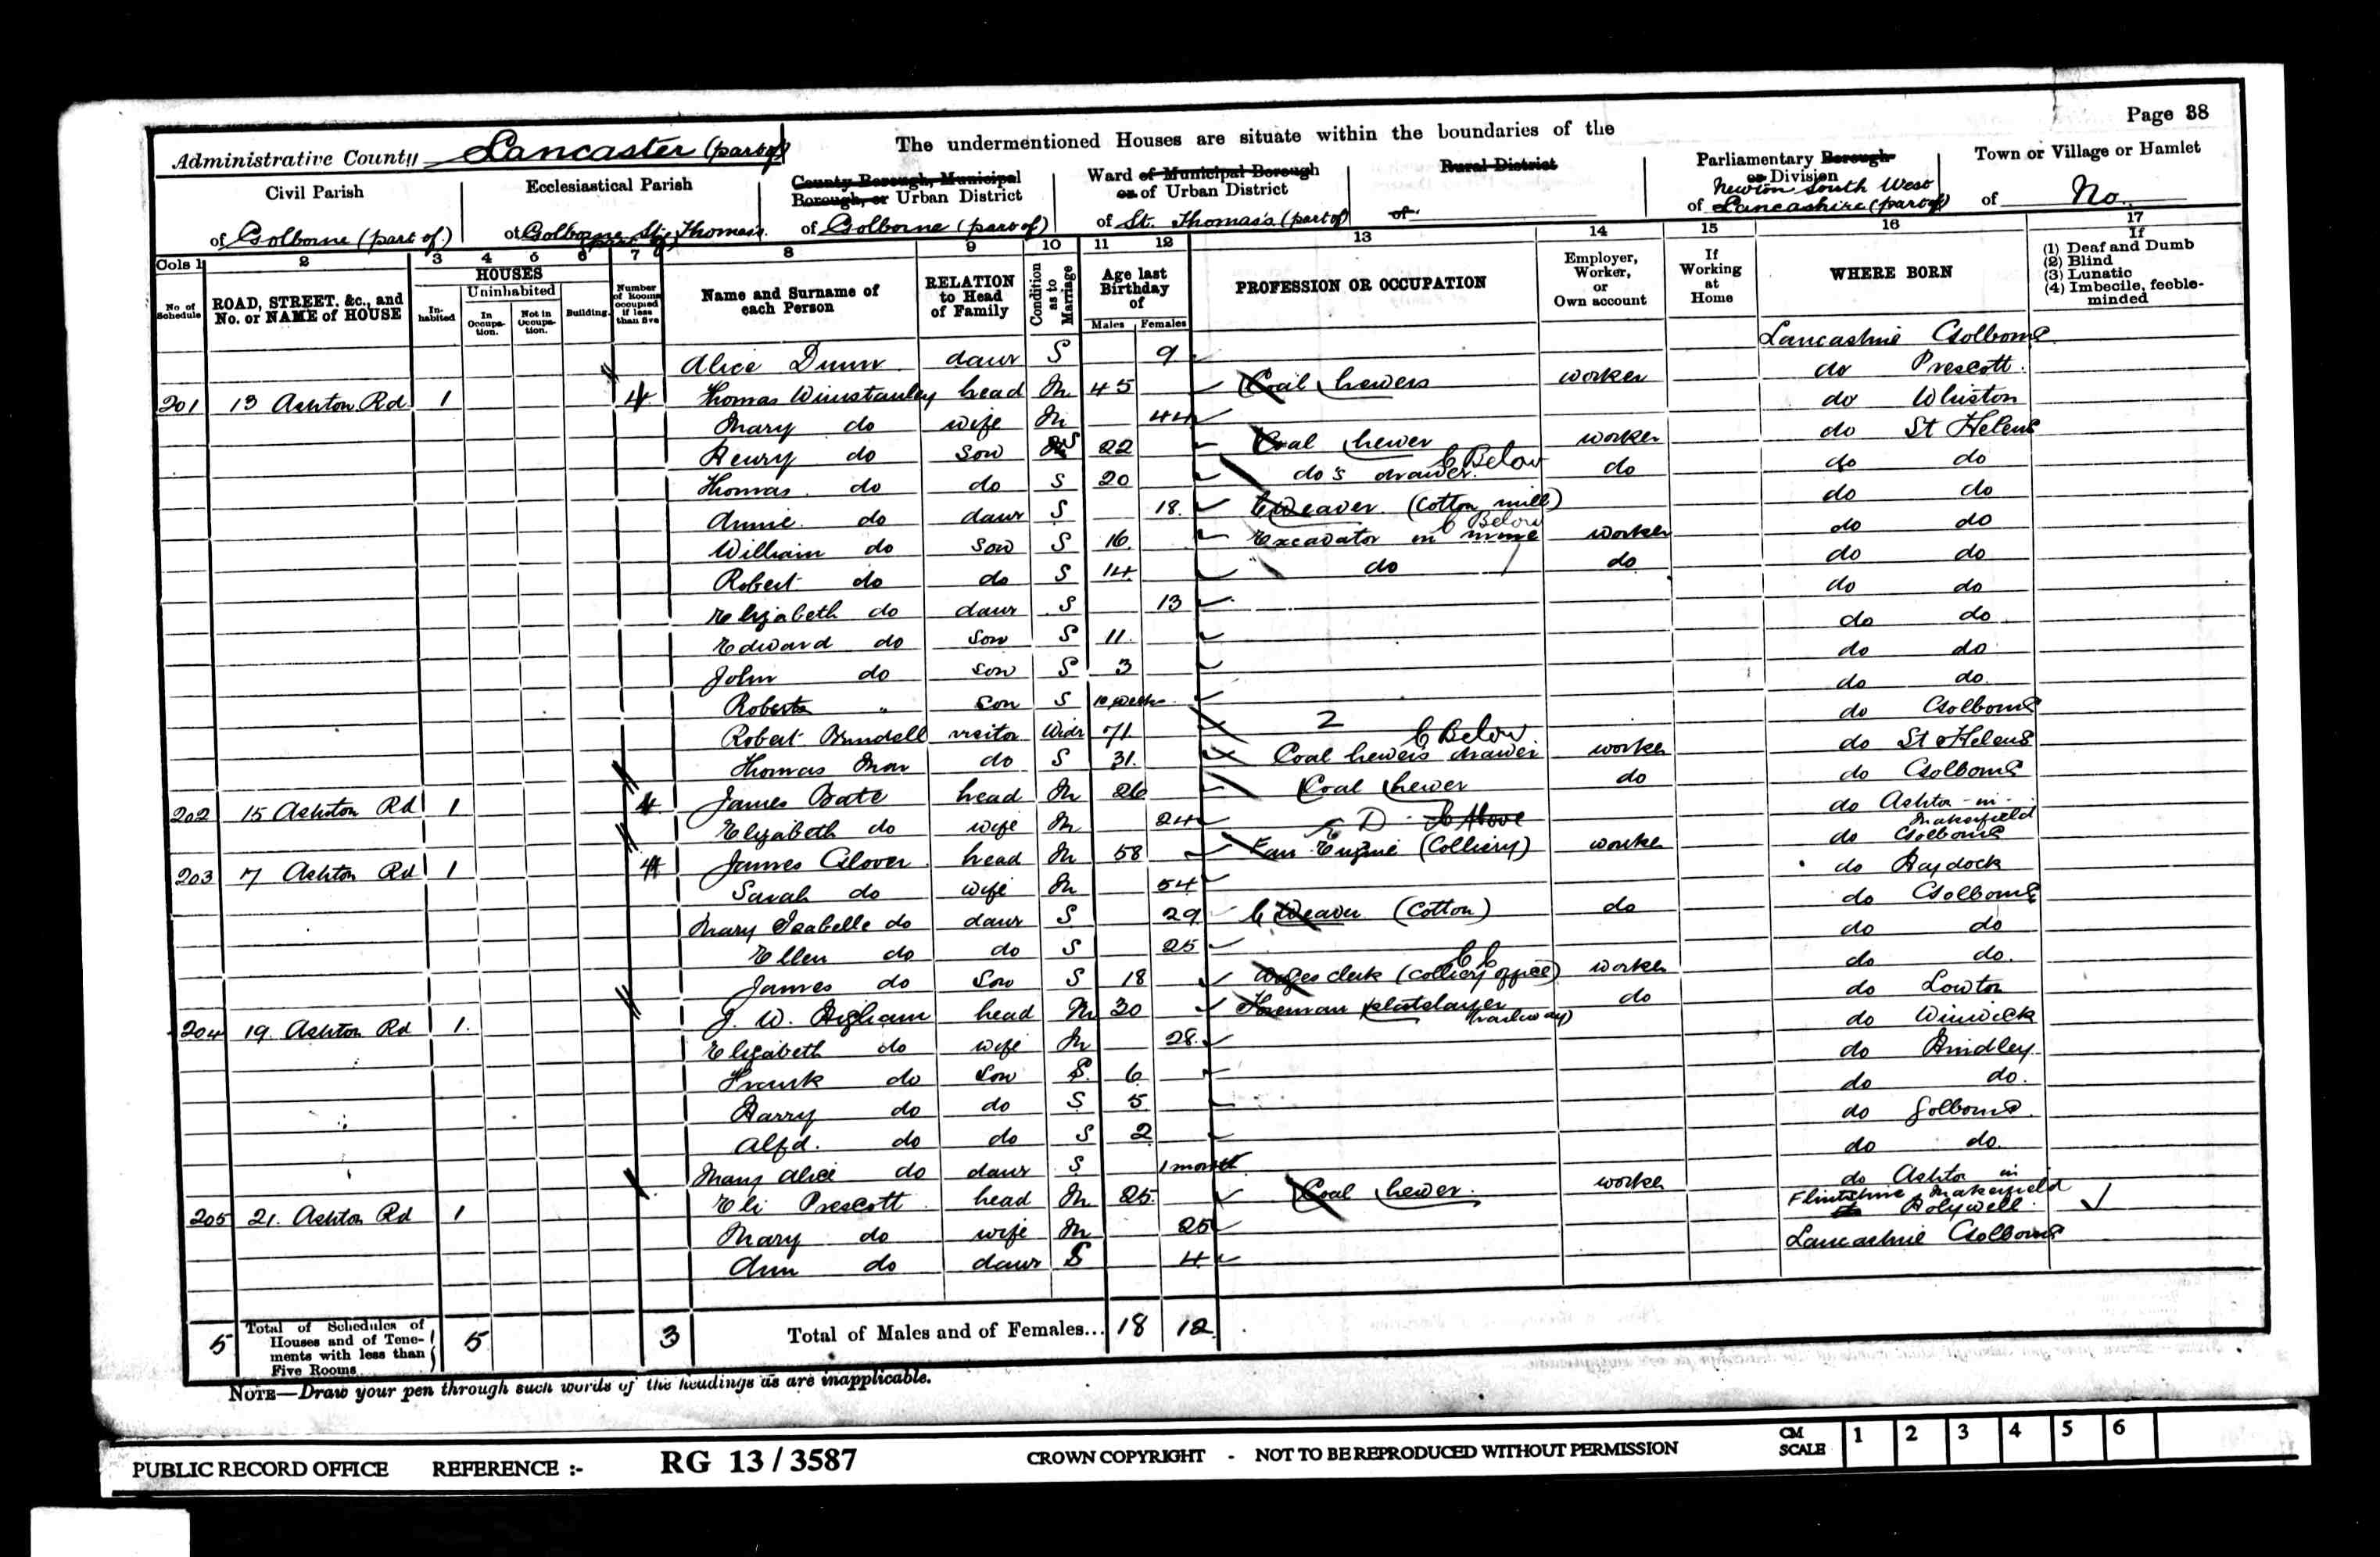 Page 38
Administrative County Lancaster (part of)
The undermentioned Houses are situate within the boundaries of the
Civil Parish
of Golborne (part of)
Ecclesiastical Parish
of Golborne St. Thomas's
County Borough, Municipal
Borough, or Urban District
of Golborne (part of)
Ward of Municipal Borough
or of Urban District
of St. Thomas's (part of)
Rural District
of
Parliamentary Borough
or Division
Newton South West
of Lancashire (part of)
Town or Village or Hamlet
of No.
Cols 1 2 3 4 5 6 7 8 9 10 11 12 13 14 15 16 17
No. of Schedule
ROAD, STREET, &c., and No. or NAME of HOUSE
HOUSES
Inhabited
Uninhabited
In Occupation.
Not in Occupation.
Building.
Number of Rooms occupied if less than five
Name and Surname of each Person
RELATION to Head of Family
Condition as to Marriage
Age last Birthday of
Males Females
PROFESSION OR OCCUPATION
Employer, Worker, or Own account
If Working at Home
WHERE BORN
If
(1) Deaf and Dumb
(2) Blind
(3) Lunatic
(4) Imbecile, feeble-minded
Alice Dunn daur S 9 Lancashire Golborne
201 13 Ashton Rd 1 4 Thomas Winstanley head M 45 Coal hewers worker do Prescott
Mary do wife M 44 do Whiston
Henry do Son S 22 Coal hewer worker do St Helens
Thomas do do S 20 do's drawer Below do do do
Annie do daur S 18 Weaver (Cotton mill) do do
William do Son S 16 Excavator in mine Below worker do do
Robert do do S 14 do do do do
Elizabeth do daur S 13 do do
Edward do Son S 11 do do
John do Son S 3 do do
do son S 10 weeks do do
Robert visitor Widr 71 2 do Golborne
Thomas do S 31 Coal hewer's drawer Below worker do St Helens
202 15 Ashton Rd 1 4 James Bate head M 26 Coal hewer do do Golborne
Elizabeth do wife M 24 do Ashton-in-Makerfield
203 7 Ashton Rd 1 4 James Glover head M 58 Fan Engine (Colliery) worker do Golborne
Sarah do wife M 54 do Haydock
Mary Isabelle do daur S 29 Weaver (Cotton) do do Golborne
Ellen do do S 25 do do
James do Son S 18 Wages clerk (Colliery office) worker do do
204 19 Ashton Rd 1 J. W. Higham head M 30 Foreman platelayer (railway) do do Lowton
Elizabeth do wife M 28 do Winwick
Frank do Son S 6 do Hindley
Harry do do S 5 do do
Alfd. do do S 2 do Golborne
Mary Alice do daur S 1 month do do
205 21 Ashton Rd 1 Eli Prescott head M 25 Coal hewer worker do Ashton in Makerfield
Mary do wife M 25 Flintshire Holywell
Ann do daur S 4 Lancashire Golborne
5 Total of Schedules of Houses and of Tenements with less than Five Rooms 5 3 Total of Males and of Females... 18 12
NOTE—Draw your pen through such words of the headings as are inapplicable.
PUBLIC RECORD OFFICE REFERENCE :- RG 13/3587 CROWN COPYRIGHT - NOT TO BE REPRODUCED WITHOUT PERMISSION
CM SCALE 1 2 3 4 5 6